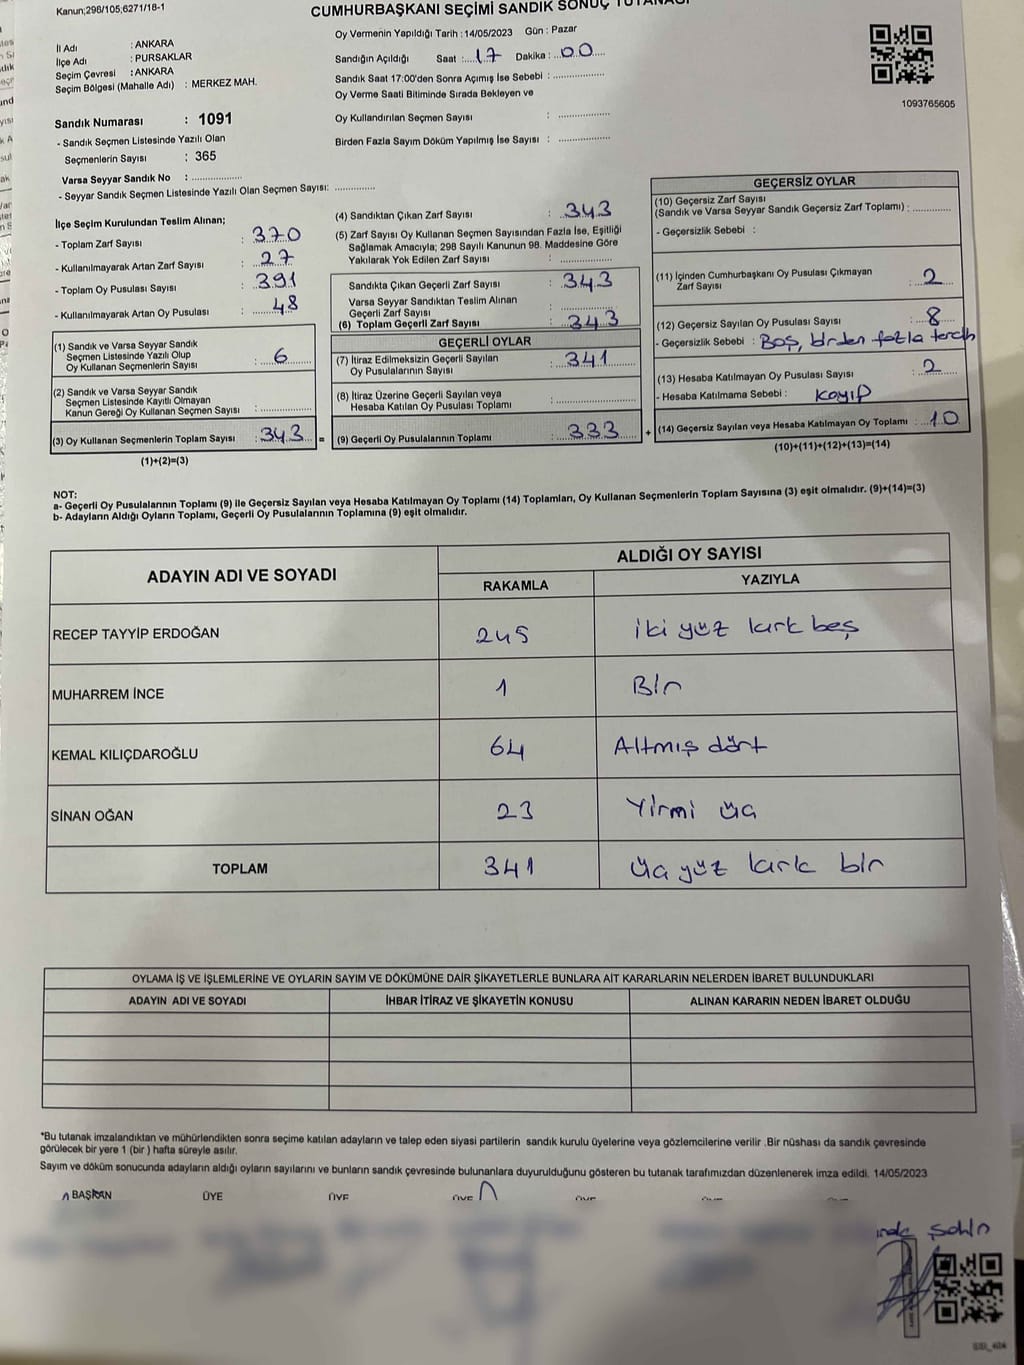 Kanun;298/105;6271/18-1
CUMHURBAŞKANI SEÇİMİ SANDIK SONUÇ TUTANAĞI
İl Adı : ANKARA
İlçe Adı : PURSAKLAR
Seçim Çevresi : ANKARA
Seçim Bölgesi (Mahalle Adı) : MERKEZ MAH.
Oy Vermenin Yapıldığı Tarih : 14/05/2023 Gün : Pazar
Sandığın Açıldığı Saat :....17 Dakika :..00
Sandık Saat 17:00'den Sonra Açımış İse Sebebi : ................
Oy Verme Saati Bitiminde Sırada Bekleyen ve
Oy Kullandırılan Seçmen Sayısı : ................
Birden Fazla Sayım Döküm Yapılmış İse Sayısı : ................
1093765605
Sandık Numarası : 1091
- Sandık Seçmen Listesinde Yazılı Olan
Seçmenlerin Sayısı : 365
Varsa Seyyar Sandık No : ................
- Seyyar Sandık Seçmen Listesinde Yazılı Olan Seçmen Sayısı: .............
İlçe Seçim Kurulundan Teslim Alınan;
- Toplam Zarf Sayısı : 370
- Kullanılmayarak Artan Zarf Sayısı : 27
- Toplam Oy Pusulası Sayısı : 391
- Kullanılmayarak Artan Oy Pusulası : 48
(1) Sandık ve Varsa Seyyar Sandık
Seçmen Listesinde Yazılı Olup
Oy Kullanan Seçmenlerin Sayısı : 6
(2) Sandık ve Varsa Seyyar Sandık
Seçmen Listesinde Kayıtlı Olmayan
Kanun Gereği Oy Kullanan Seçmen Sayısı : ................
(3) Oy Kullanan Seçmenlerin Toplam Sayısı : 343 =
(1)+(2)=(3)
(4) Sandıktan Çıkan Zarf Sayısı : 343
(5) Zarf Sayısı Oy Kullanan Seçmen Sayısından Fazla İse, Eşitliği
Sağlamak Amacıyla; 298 Sayılı Kanunun 98. Maddesine Göre
Yakılarak Yok Edilen Zarf Sayısı : ................
Sandıkta Çıkan Geçerli Zarf Sayısı : 343
Varsa Seyyar Sandıktan Teslim Alınan
Geçerli Zarf Sayısı : ................
(6) Toplam Geçerli Zarf Sayısı : 343
GEÇERLİ OYLAR
(7) İtiraz Edilmeksizin Geçerli Sayılan
Oy Pusulalarının Sayısı : 341
(8) İtiraz Üzerine Geçerli Sayılan veya
Hesaba Katılan Oy Pusulası Toplamı : ................
(9) Geçerli Oy Pusulalarının Toplamı : 333 +
GEÇERSİZ OYLAR
(10) Geçersiz Zarf Sayısı
(Sandık ve Varsa Seyyar Sandık Geçersiz Zarf Toplamı) : .............
- Geçersizlik Sebebi :
(11) İçinden Cumhurbaşkanı Oy Pusulası Çıkmayan
Zarf Sayısı : 2
(12) Geçersiz Sayılan Oy Pusulası Sayısı : 8
- Geçersizlik Sebebi : Boş, birden fazla tercih
(13) Hesaba Katılmayan Oy Pusulası Sayısı : 2
- Hesaba Katılmama Sebebi : kayıp
(14) Geçersiz Sayılan veya Hesaba Katılmayan Oy Toplamı : 10
(10)+(11)+(12)+(13)=(14)
NOT:
a- Geçerli Oy Pusulalarının Toplamı (9) ile Geçersiz Sayılan veya Hesaba Katılmayan Oy Toplamı (14) Toplamları, Oy Kullanan Seçmenlerin Toplam Sayısına (3) eşit olmalıdır. (9)+(14)=(3)
b- Adayların Aldığı Oyların Toplamı, Geçerli Oy Pusulalarının Toplamına (9) eşit olmalıdır.
ADAYIN ADI VE SOYADI
ALDIĞI OY SAYISI
RAKAMLA YAZIYLA
RECEP TAYYİP ERDOĞAN 245 iki yüz kırk beş
MUHARREM İNCE 1 Bir
KEMAL KILIÇDAROĞLU 64 Altmış dört
SİNAN OĞAN 23 Yirmi üç
TOPLAM 341 üç yüz kırk bir
OYLAMA İŞ VE İŞLEMLERİNE VE OYLARIN SAYIM VE DÖKÜMÜNE DAİR ŞİKAYETLERLE BUNLARA AİT KARARLARIN NELERDEN İBARET BULUNDUKLARI
ADAYIN ADI VE SOYADI İHBAR İTİRAZ VE ŞİKAYETİN KONUSU ALINAN KARARIN NEDEN İBARET OLDUĞU
*Bu tutanak imzalandıktan ve mühürlendikten sonra seçime katılan adayların ve talep eden siyasi partilerin sandık kurulu üyelerine veya gözlemcilerine verilir .Bir nüshası da sandık çevresinde
görülecek bir yere 1 (bir ) hafta süreyle asılır.
Sayım ve döküm sonucunda adayların aldığı oyların sayılarını ve bunların sandık çevresinde bulunanlara duyurulduğunu gösteren bu tutanak tarafımızdan düzenlenerek imza edildi. 14/05/2023
BAŞKAN ÜYE ÜYE ÜYE ÜYE